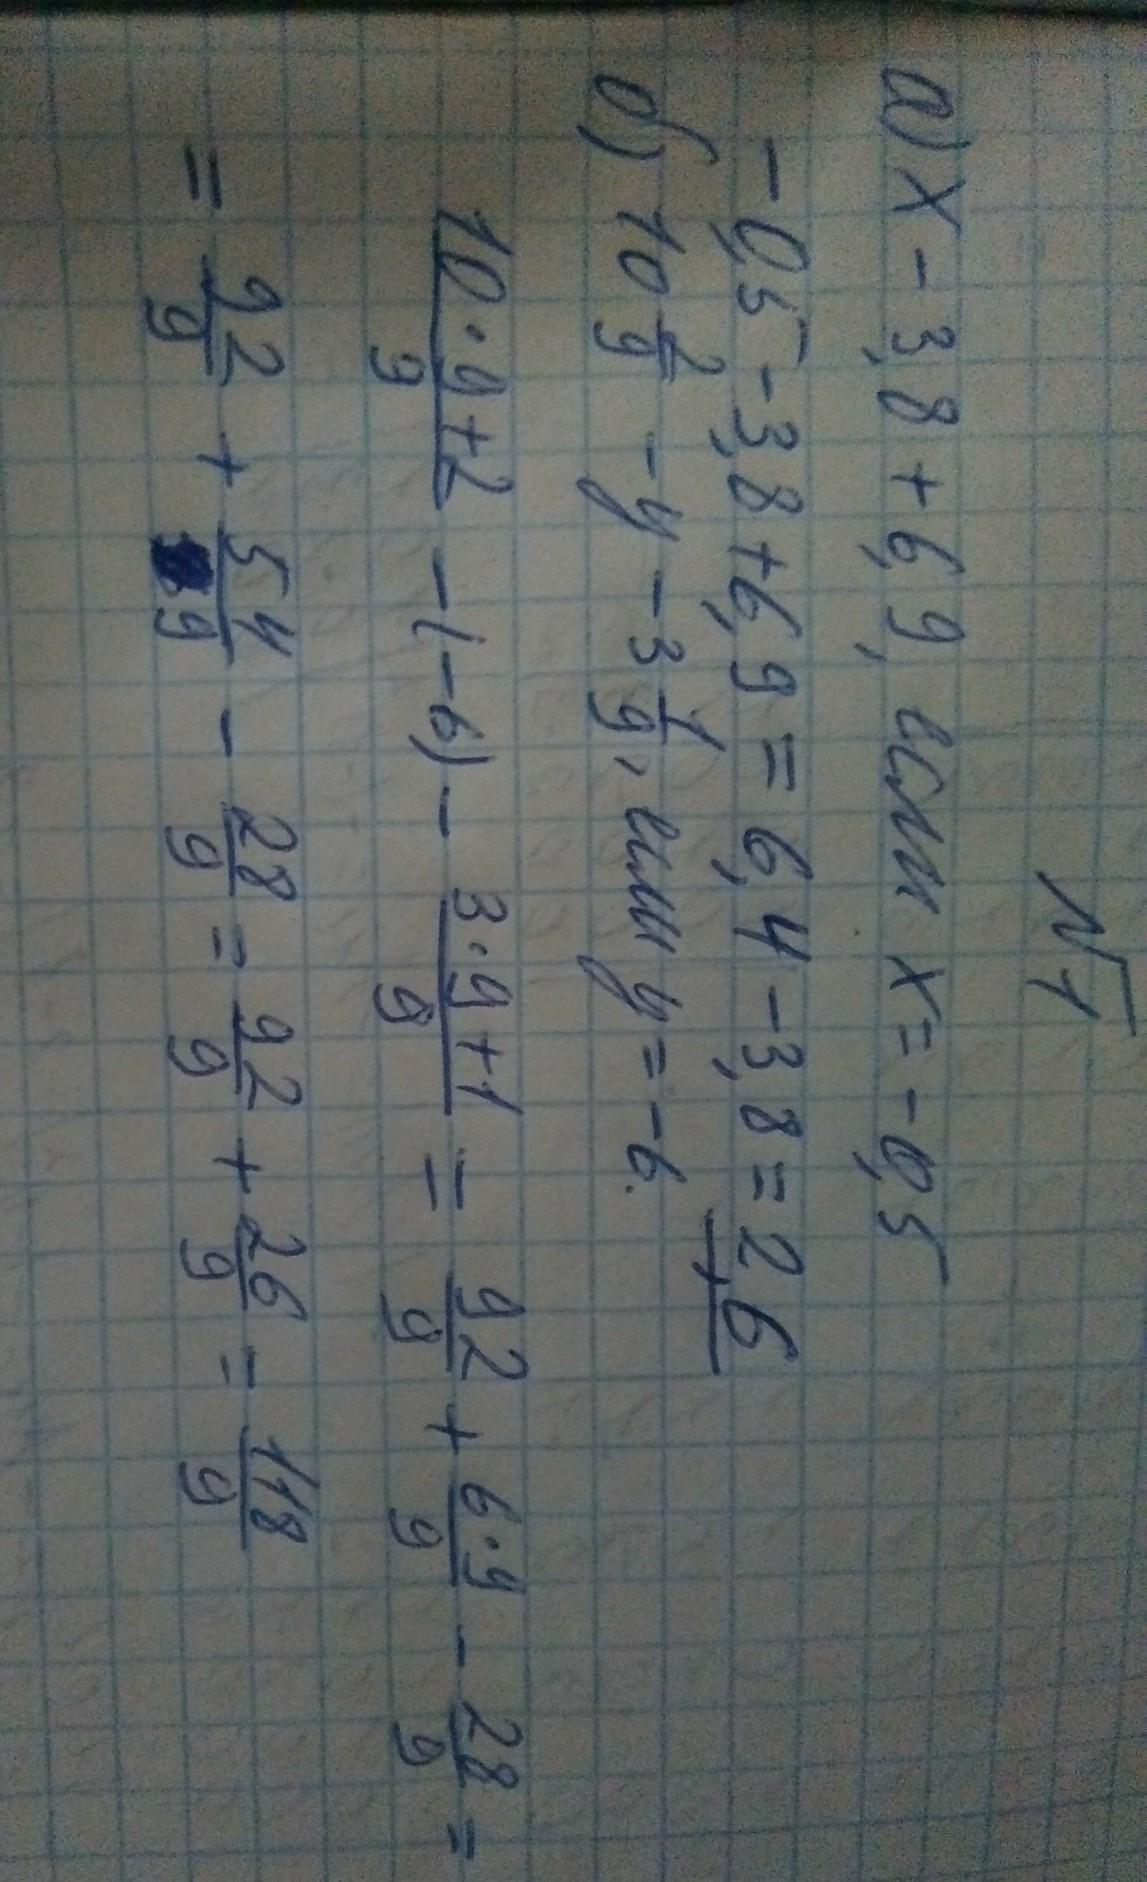 №1
а) x - 3,8 + 6,9, если x = -0,5
-0,5 - 3,8 + 6,9 = 6,4 - 3,8 = 2,6
б) 10 2/9 - y - 3 1/9, если y = -6.
(10·9+2)/9 - (-6) - (3·9+1)/9 = 92/9 + (6·9)/9 - 28/9 =
= 92/9 + 54/9 - 28/9 = 92/9 + 26/9 = 118/9